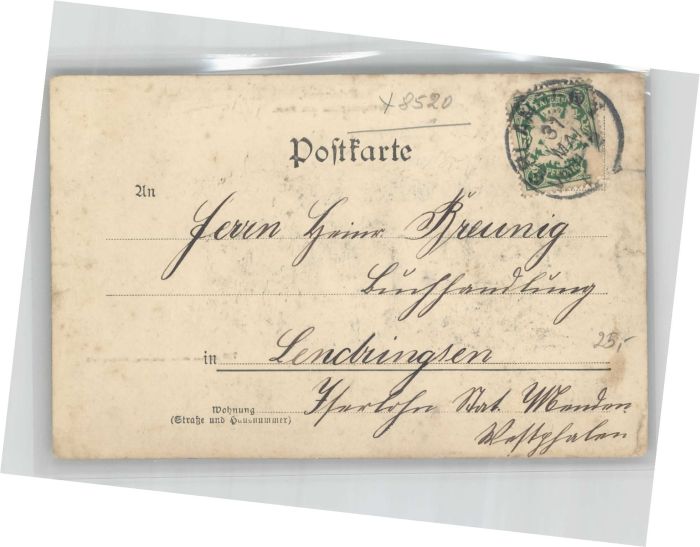 x8520
Postkarte
An
Herrn Heinr Breunig
Buchhandlung
25,-
in Lendringsen
Wohnung
(Straße und Hausnummer)
Iserlohn Stat. Menden
Westphalen
31